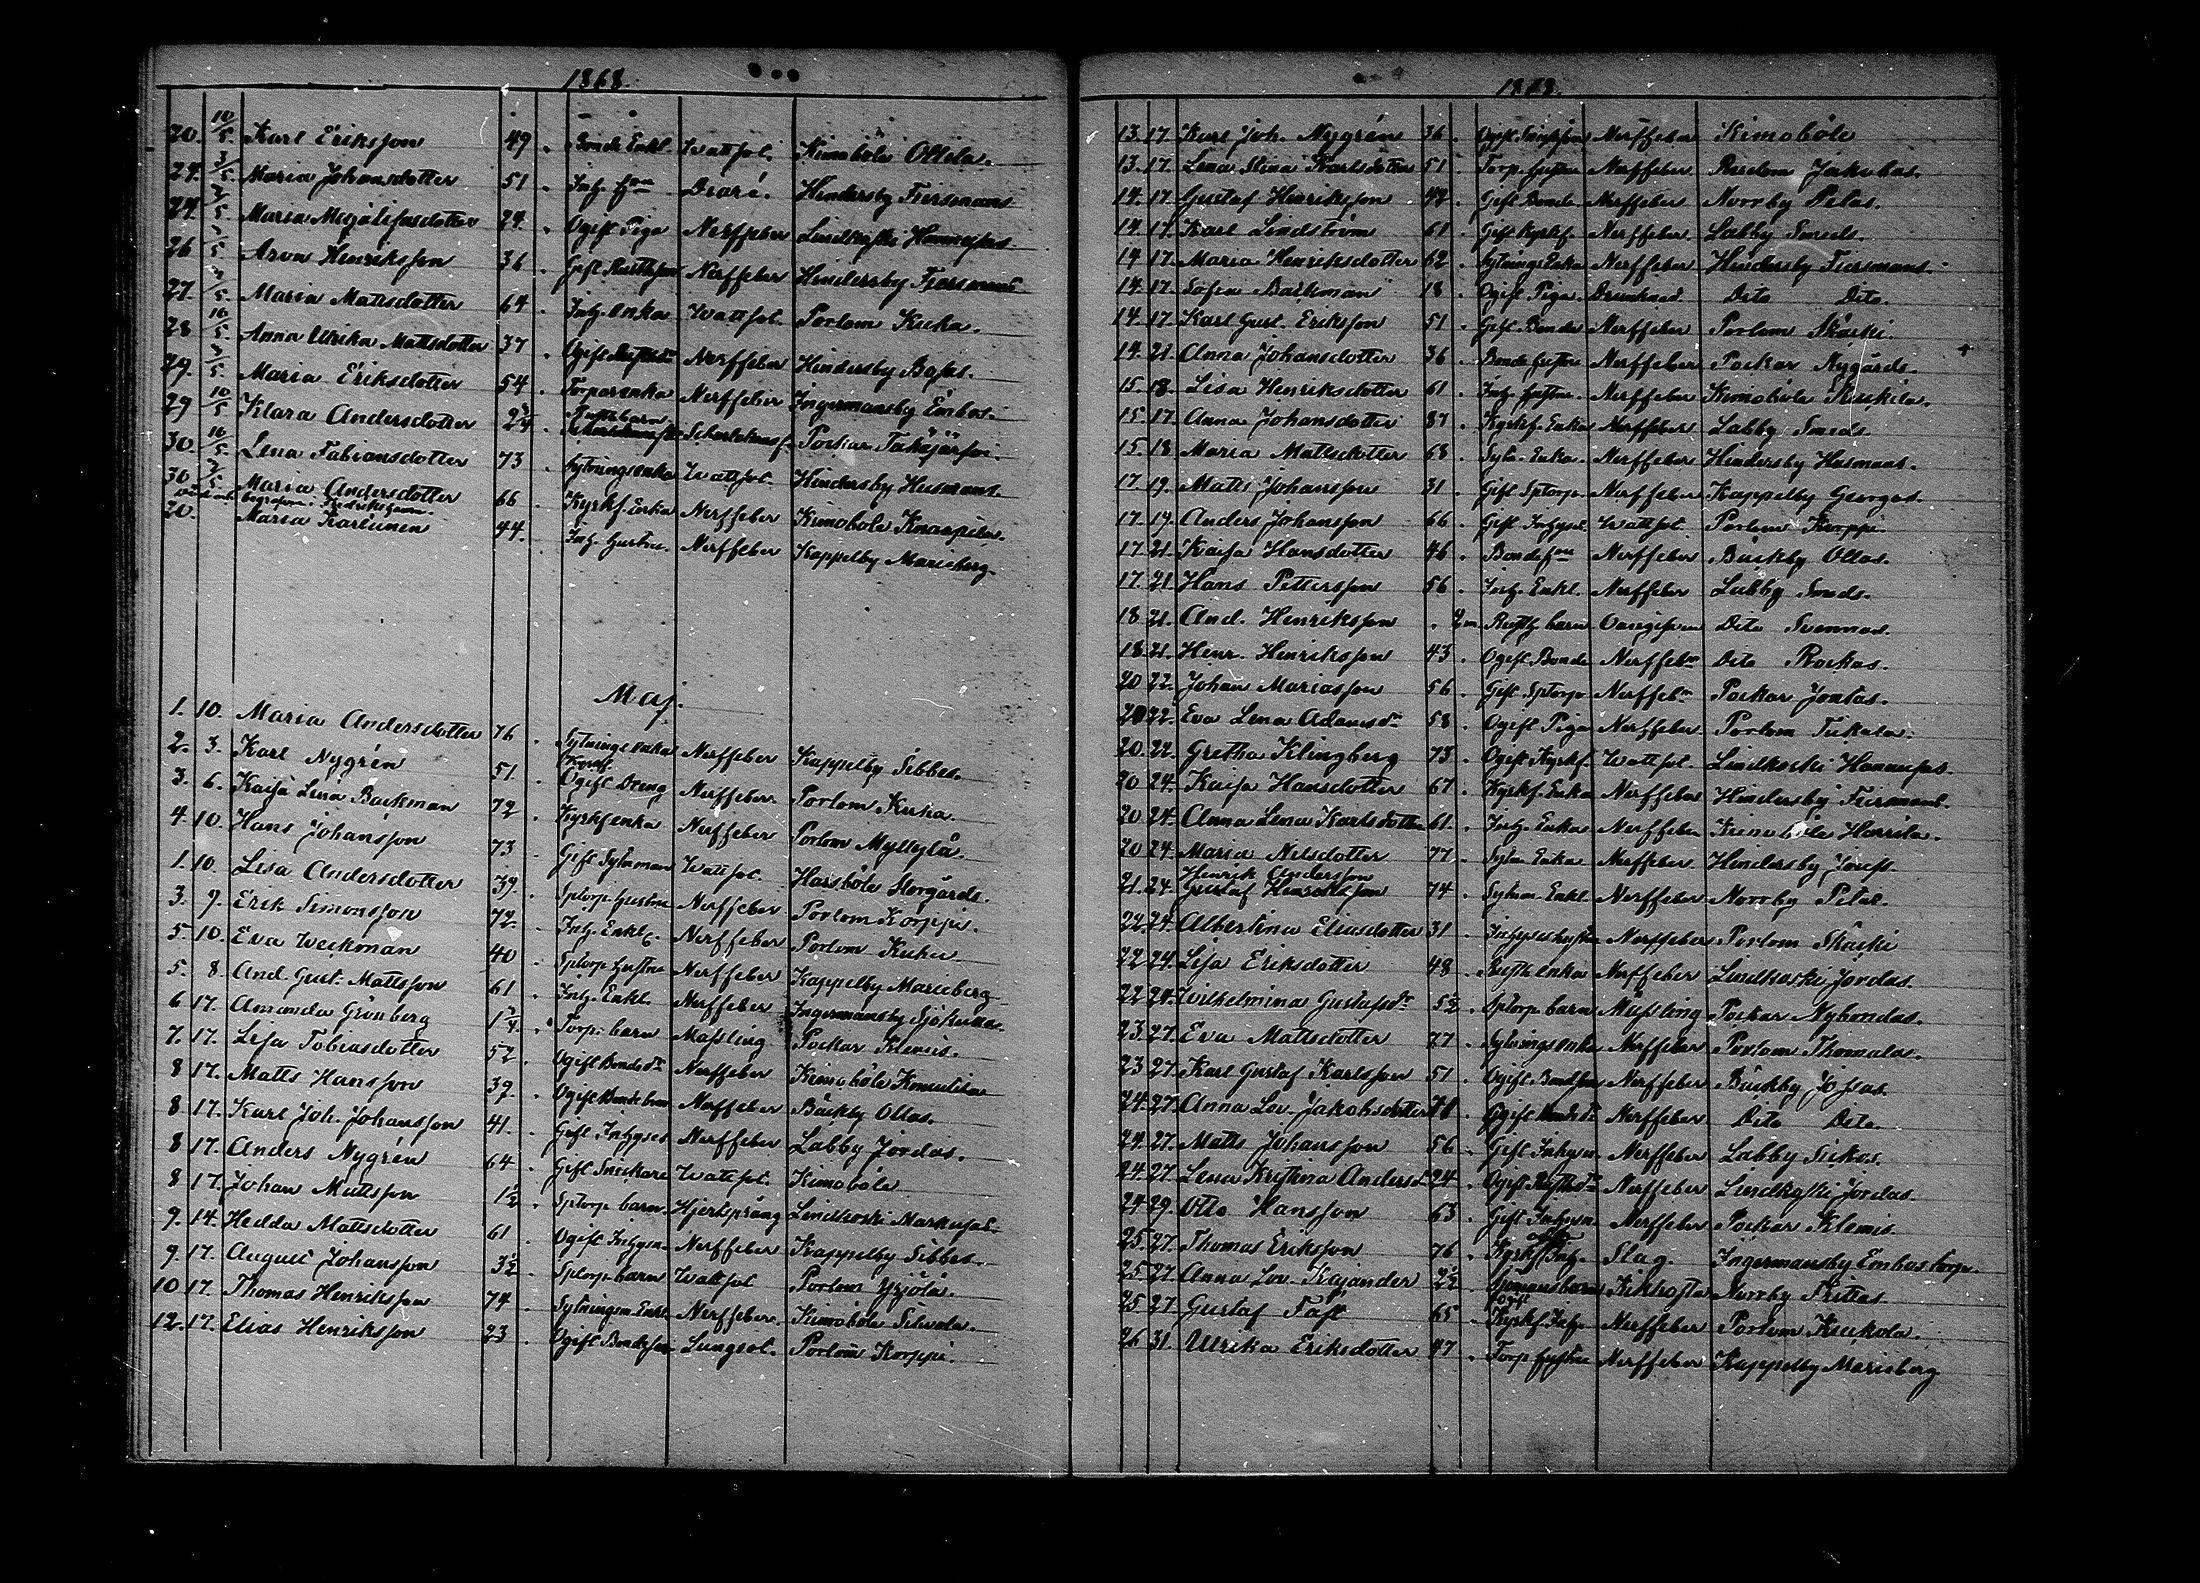 1868.
20. 10/5. Karl Eriksson 49. Bonde Enkl. Wattsot. Kimoböle Ollila.
24. 3/5. Maria Johansdotter 51. Inh. hru Diaré. Hindersby Fiersmans
24. 3/5. Maria 24. Ogift Piga Nerffeber Lindkoski Hannusas
26 3/5 Aron Henriksson 36. Gift Nerffeber Hindersby Fiersmans
27. 3/5. Maria Mattsdotter 64. Inh. enka Wattsot. Porlom Kuka.
28 10/5. Anna Ulrika Mattsdotter 37. Ogift Nerffeber Hindersby Boss.
29. 3/5. Maria Eriksdotter 54. Torpar enka Nerffeber Ingermansby Embos.
29 10/5 Klara Andersdotter 2 3/4 Poekar
30. 10/5. Lena Fabiansdotter 73. Sytningsenka Wattsot. Hindersby Husmans.
30 3/5. Maria Andersdotter 66. Kyrkf. Enka Nerffeber Kimoböle
begrafven i Fredrikshamn.
20. Maria Karlunen 44. Inh. hustru. Nerffeber Kappelby Marieberg.
Maj.
1. 10. Maria Andersdotter 76. Sytnings enka Nerffeber Kappelby Sibbes.
2. 3. Karl Nygrén 51. Kyrkf. Ogift Dreng Nerffeber. Porlom Kuka.
3. 6. Kajsa Lena Backman 72. Kyrkf enka Nerffeber Porlom Myllylä.
4. 10. Hans Johansson 73. Gift Sytnman Wattsot. Harsböle Storgårds.
1. 10. Lisa Andersdotter 39. Sptorp. hustru Nerffeber Porlom Korppi.
3. 9. Erik Simonsson 72. Inh. Enkl. Nerffeber Porlom Kuka
5. 10. Eva Weckman 40. Sptorp hustru Nerffeber Kappelby Marieberg
5. 8. And. Gust. Mattsson 61. Inh. Enkl. Nerffeber Ingermansby Sjökulla.
6 17. Amanda Grönberg 1 3/4. Torp. barn Massling Poekar Klemis.
7. 17. Lisa Tobiasdotter 52. Ogift Bondedr Nerffeber Kimoböle
8 17. Matts Hansson 39. Ogift Nerffeber Bäckby Ollas.
8. 17. Karl Joh. Johansson 41. Gift Inhyses Nerffeber. Labby Jordas.
8 17. Anders Nygrén 64. Gift Snickare Wattsot. Kimoböle
8 17. Johan Mattsson 1 1/2. Sptorp. barn. Hjertsprång Lindkoski Markusas.
9. 14. Hedda Mattsdotter 61. Ogift Inhysn. Nerffeber Kappelby Sibbes.
9. 17. August Johansson 3 1/2. Sptorp. barn Wattsot Porlom Yrjölä.
10 17. Thomas Henriksson 74. Sytningsm. Enkl. Nerffeber. Kimoböle
12. 17. Elias Henriksson 23. Ogift Bondeson Lungsot. Porlom Korppi.
1868.
13. 17. Karl Joh. Nygrén 36. Ogift Nerffeber Kimoböle
13. 17. Lena Stina Karlsdotter 51. Torp. hustru Nerffeber. Rudom Jakobas.
14. 17. Gustaf Henriksson 42. Gift Bonde. Nerffeber. Norrby Pelas.
14. 17. Karl Lindström 61. Gift Kyrkf. Nerffeber. Labby Smeds.
14 17. Maria Henriksdotter 62. Sytnings Enka Nerffeber. Hindersby Fiersmans.
14. 17. Sofia Backman 18. Ogift Piga. Drunknad. Dito Dito.
14. 17. Karl Gust. Eriksson 51. Gift Bonde Nerffeber Porlom Skäski.
14. 21. Anna Johansdotter 36. Bonde hustru Nerffeber Poekar Nygårds.
15. 18. Lisa Henriksdotter 61. Inh. hustru. Nerffeber Kimoböle
15. 17. Anna Johansdotter 87. Kyrkf. Enka Nerffeber Labby Smeds.
15. 18 Maria Mattsdotter 68. Sytn. Enka. Nerffeber Hindersby Husmans.
17 19. Matts Johansson 31. Gift Sptorp. Nerffeber Kappelby Georges.
17. 19. Anders Johansson 66. Gift Inhyses. Wattsot. Porlom Korppi.
17. 21. Kajsa Hansdotter 46. Bonde hru Nerffeber Bäckby Ollas.
17. 21 Hans Pettersson 56. Inh. Enkl. Nerffeber Labby Smeds.
18 21. And. Henriksson . 4 m Rusth barn Oangifven Dito Svennas.
18. 21. Henr. Henriksson 43. Ogift Bonde Nerffebr Dito Rockas.
20 22. Johan Mariasson 56. Gift Sptorp Nerffebr. Poekar Jontas.
20 22. Eva Lena Adamsdr 58. Ogift Piga Nerffeber. Porlom Tukala.
20. 22. Gretha Klingberg 73. Ogift Kyrkf. Wattsot. Lindkoski Hannusas.
20 24. Kajsa Hansdotter 67. Kyrkf. Enka Nerffeber Hindersby Fiersmans.
20 24. Anna Lena Karlsdotter 61. Inh. Enka Nerffeber Kimoböle Harrila.
20 24. Maria Nilsdotter 77. Sytn Enka Nerffeber Hindersby Joseps.
Henrik Andersson
21. 24. Gustaf Henriksson 74. Sytnm Enkl. Nerffeber Norrby Pelas.
22 24. Albertina Eliasdotter 31. Inhyses hustru Nerffeber Porlom Skäski
22 24. Lisa Eriksdotter 48. Rusth. enka Nerffeber Lindkoski Jordas.
22 24. Wilhelmina Gustafsdr 5 1/2. Sptorp. barn Massling Poekar Nybondas.
23. 27. Eva Mattsdotter 77. Sytnings enka Nerffeber Porlom Thomala.
23 27. Karl Gustaf Karlsson 51. Ogift Bondeson Nerffeber Bäckby Jossas.
24. 27. Anna Lov. Jakobsdotter 71. Ogift Nerffeber Dito Dito.
24. 27. Matts Johansson 56. Gift Inhysn Nerffeber Labby Sickos.
24. 27. Lena Kristina Andersd. 24. Ogift Nerffeber Lindkoski Jordas.
24 29. Otto Hansson 63. Gift Inhysn Nerffeber Poekar Klemis.
25. 27. Thomas Eriksson 76. Kyrkf. Inh. Slag. Ingermansby Embos torp.
25. 27. Anna Lov. Kajander 2 1/2. Kikhosta Norrby Skittas.
25 27. Gustaf Täft 65. Ogift Kyrkf. Inh. Nerffeber Porlom Kuckola.
26 31. Ulrika Eriksdotter 47. Torp hustru Nerffeber Kappelby Marieberg